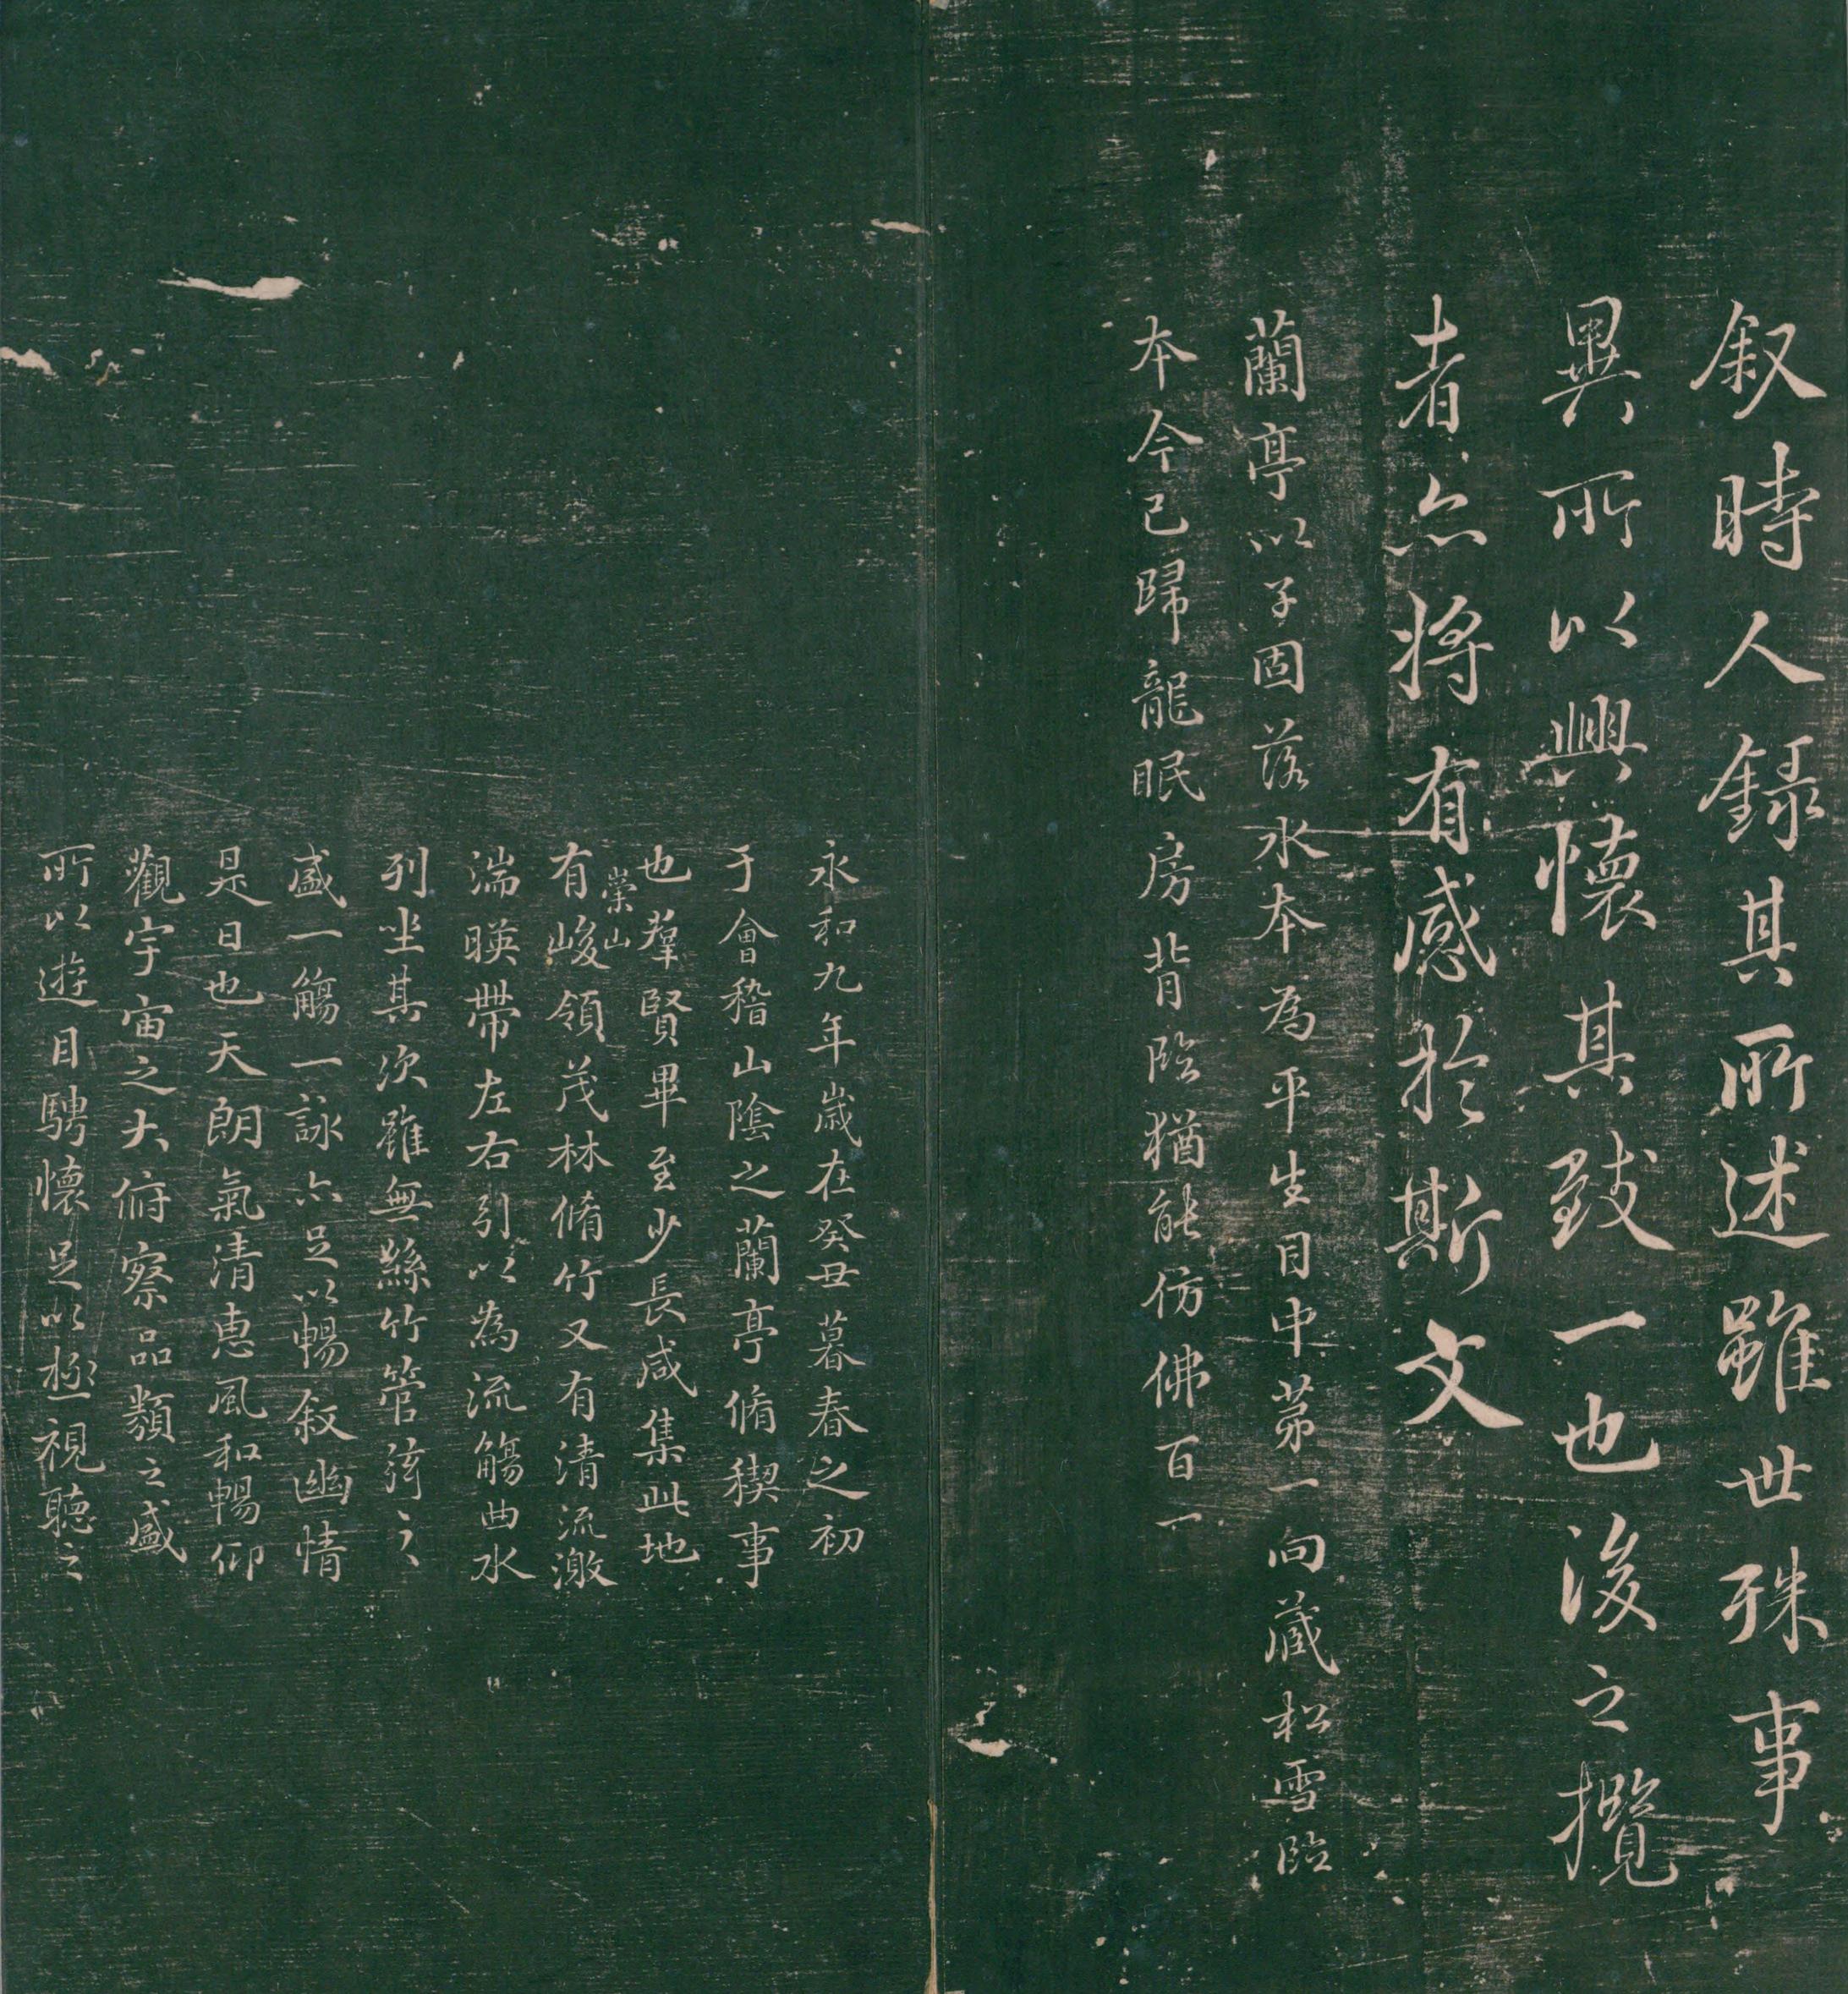 叙時人録其所述雖世殊事
異所以興懷其致一也後之攬
者亦將有感於斯文
蘭亭以子固落水本為平生目中苐一向藏松雪臨
本今已歸龍眠房背臨猶能仿佛百一
永和九年歲在癸丑暮春之初
于會稽山陰之蘭亭脩稧事
也羣賢畢至少長咸集此地
崇山
有峻領茂林脩竹又有清流激
湍暎帶左右引以為流觴曲水
列坐其次雖無絲竹管弦之
盛一觴一詠亦足以暢叙幽情
是日也天朗氣清惠風和暢仰
觀宇宙之大俯察品類之盛
所以遊目騁懷足以極視聽之